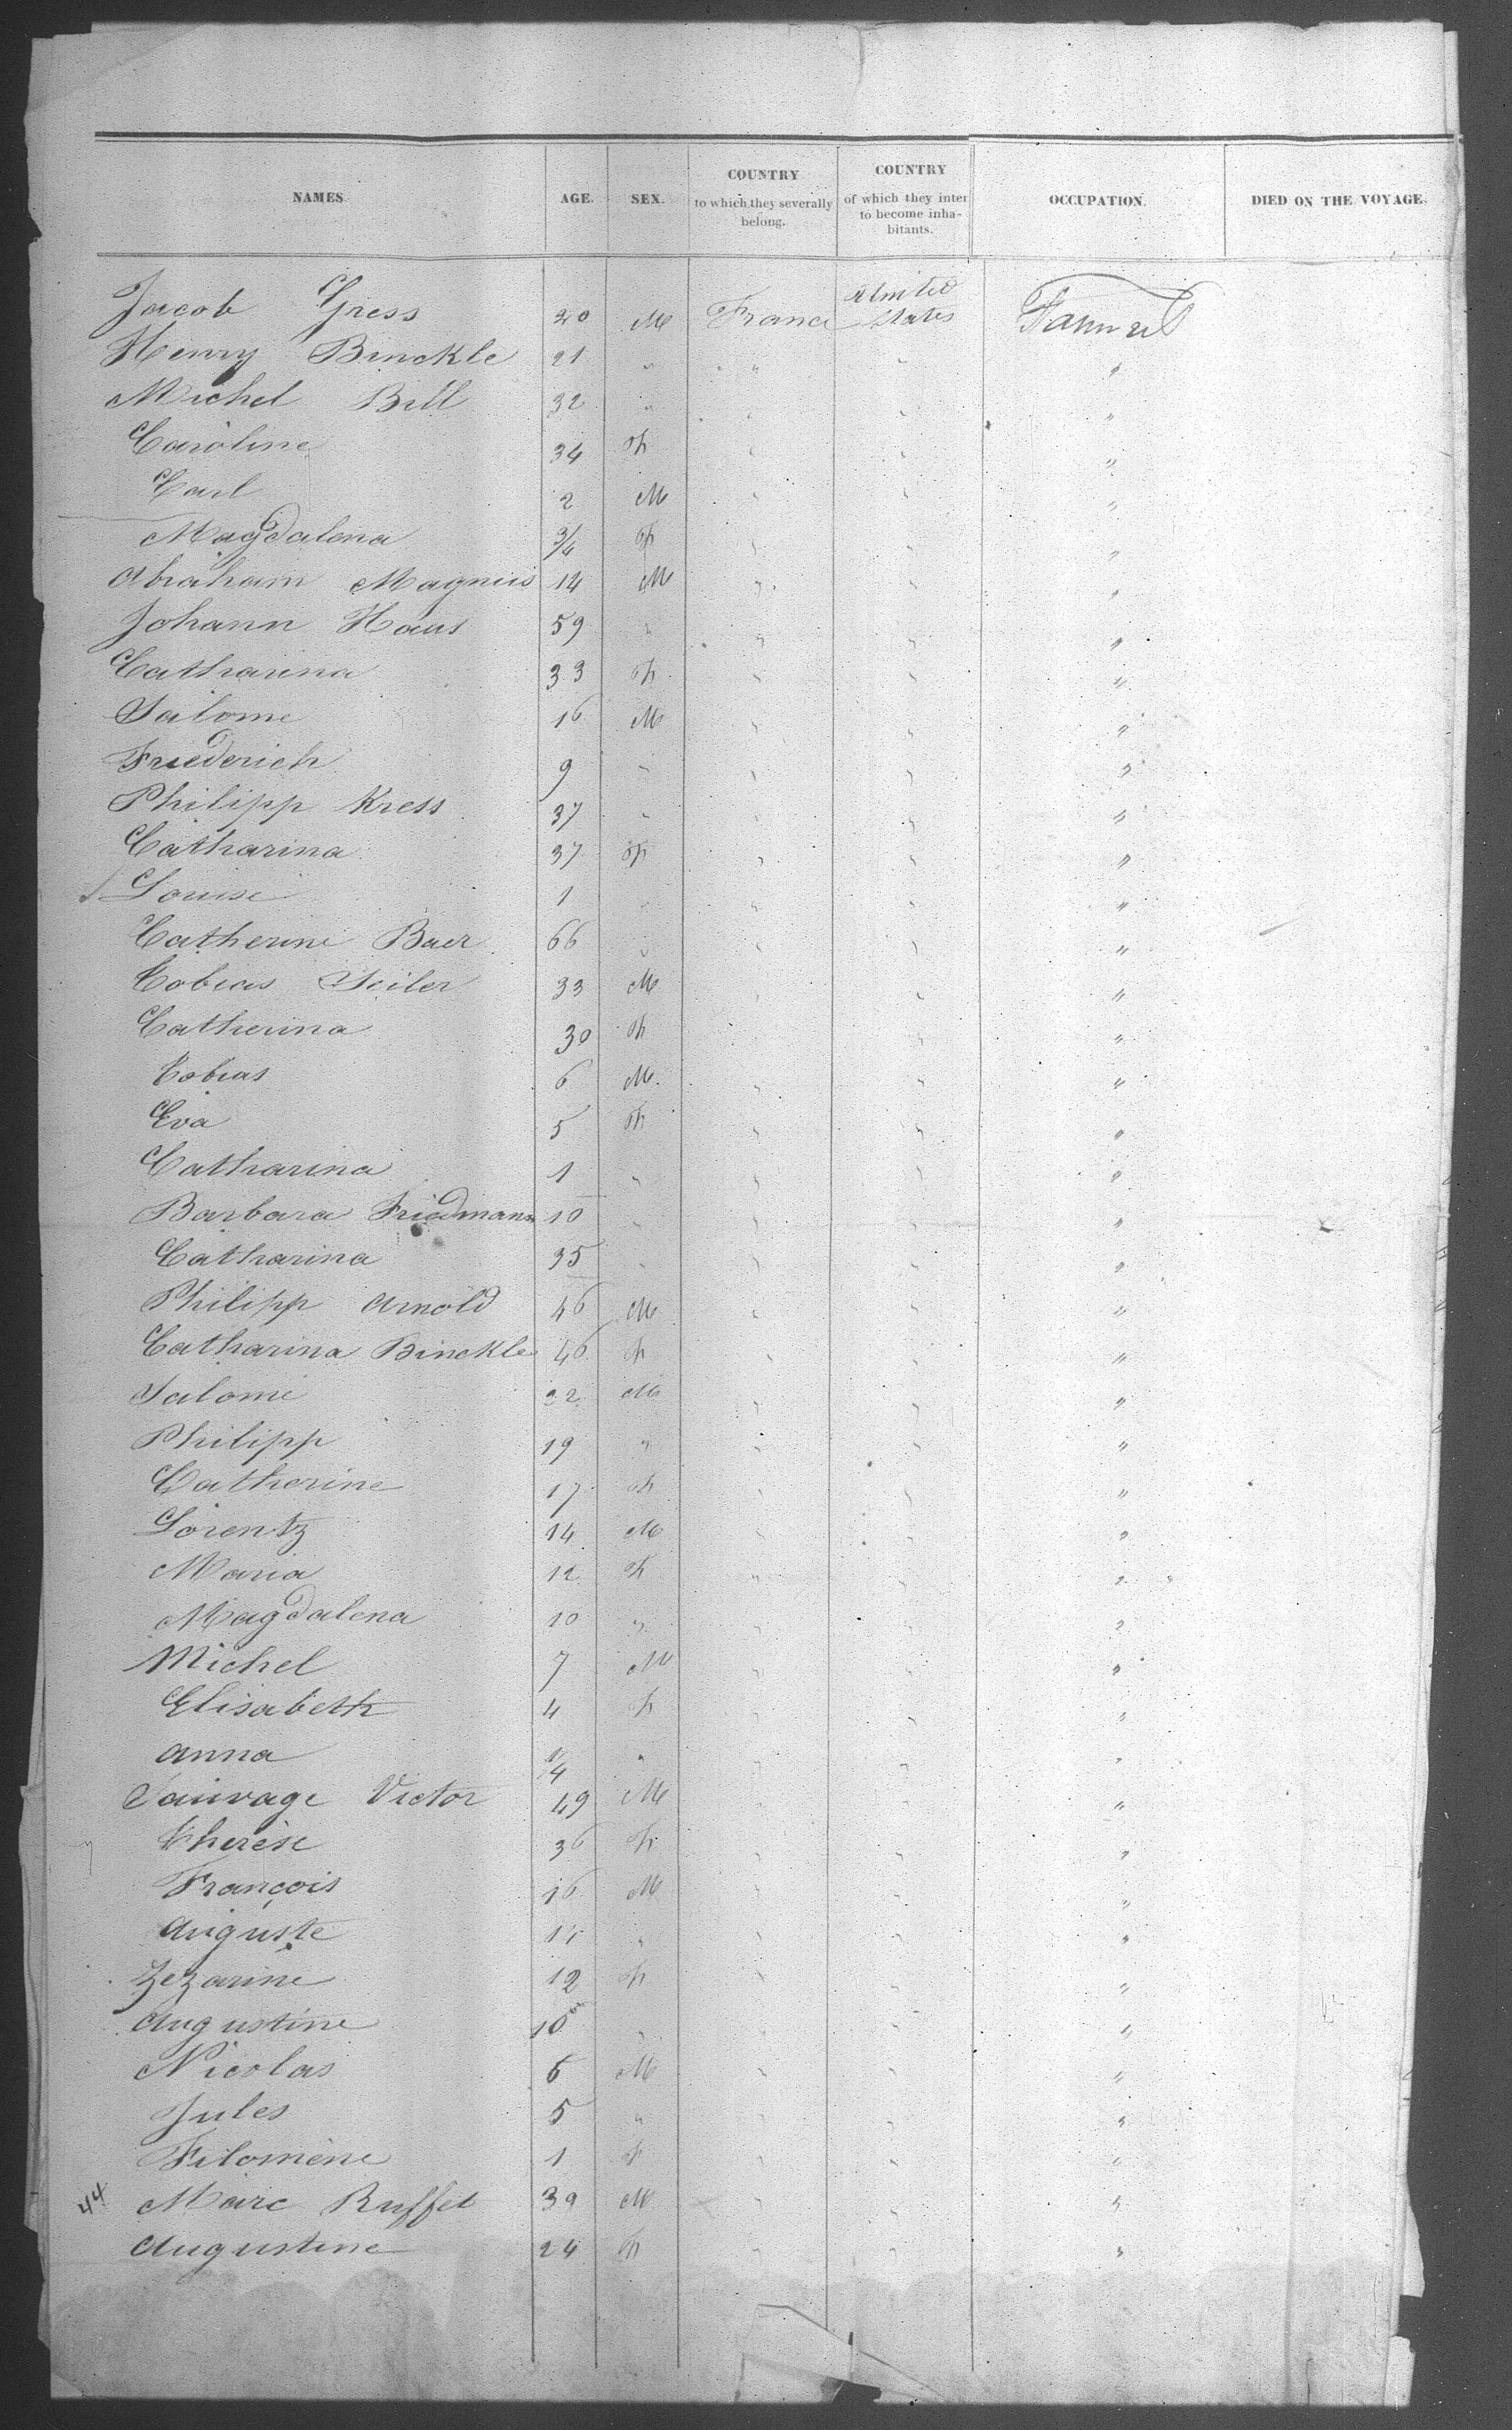 NAMES. AGE. SEX. COUNTRY to which they severally belong. COUNTRY of which they inter to become inha- bitants. OCCUPATION. DIED ON THE VOYAGE.
Jacob Gress 20 M France United States
Henry Binckle 21 " " " "
Michel Bill 32 " " " "
Caroline 34 F " " "
Carl 2 M " " "
Magdalena 3/4 F " " "
Abraham Magnus 14 M " " "
Johann Haus 59 " " " "
Catharina 33 F " " "
Salome 16 M " " "
Friederich 9 " " " "
Philipp Kress 37 " " " "
Catharina 37 F " " "
Louise 1 " " " "
Catherine Baer 66 " " " "
Tobias Seiler 33 M " " "
Catherina 30 F " " "
Tobias 6 M " " "
Eva 5 F " " "
Catharina 1 " " " "
Barbara Friedmann 10 " " " "
Catharina 35 " " " "
Philipp Arnold 46 M " " "
Catharina Binckle 46 F " " "
Salome 22 M " " "
Philipp 19 " " " "
Catherine 17 F " " "
Lorentz 14 M " " "
Maria 12 F " " "
Magdalena 10 " " " "
Michel 7 M " " "
Elisabeth 4 F " " "
Anna 1/4 " " " "
Sauvage Victor 49 M " " "
Therèse 36 F " " "
François 16 M " " "
Auguste 14 " " " "
Zezarine 12 F " " "
Augustine 10 " " " "
Nicolas 6 M " " "
Jules 5 " " " "
Filomène 1 F " " "
44 Marc Ruffet 39 M " " "
Augustine 24 F " " "